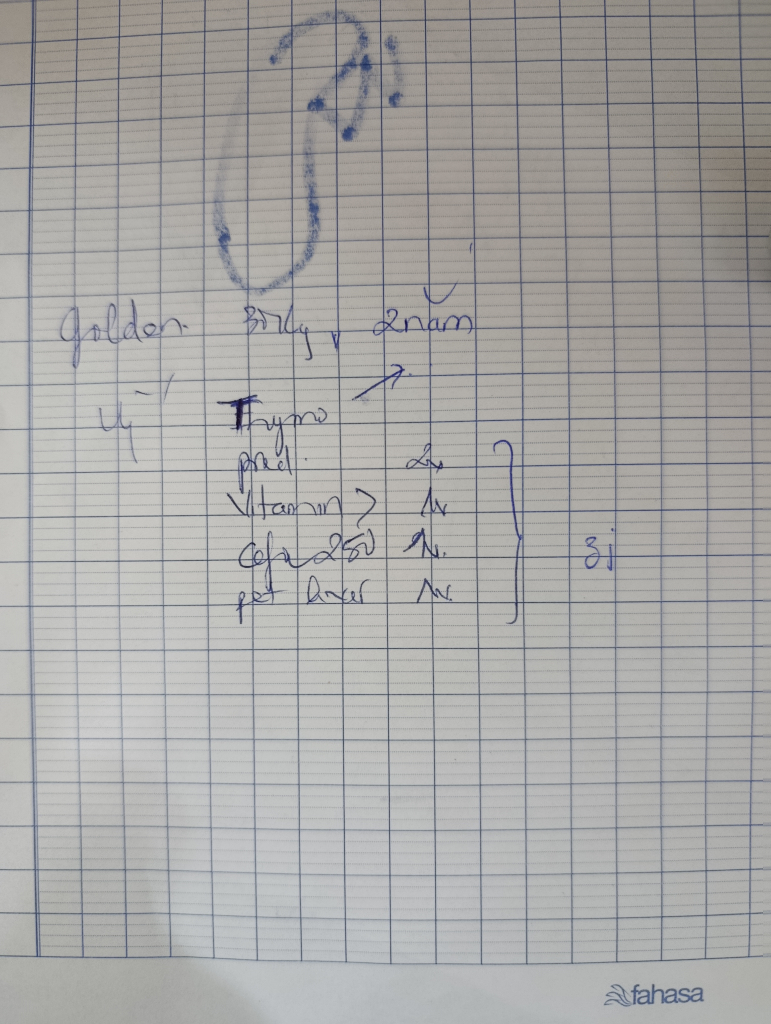 Golden. 30kg, 2 năm
Thymo
pred. 2v
Vitamin
Cefa 250 1v.
pet liver 1v.
3j
fahasa